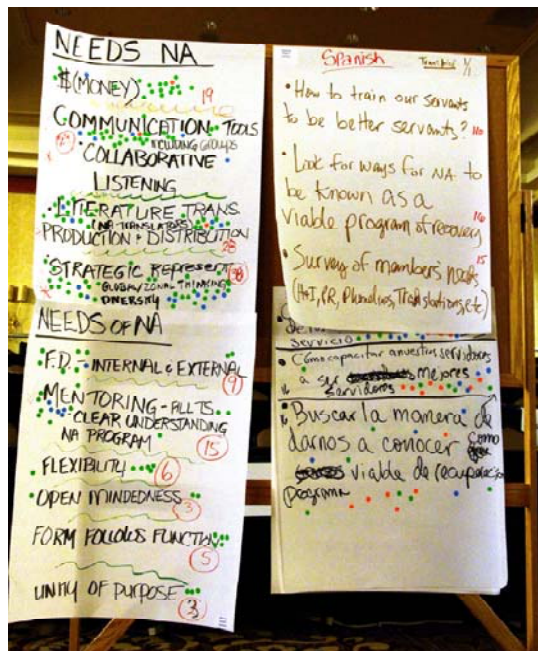 NEEDS NA
$(MONEY) 19
COMMUNICATION TOOLS
INCLUDING GROUPS
COLLABORATIVE
LISTENING
LITERATURE TRANS.
(NA-TRANSLATORS)
PRODUCTION + DISTRIBUTION
28
STRATEGIC REPRESENT
GLOBAL/ZONAL THINKING
DIVERSITY
NEEDS OF NA
F.D. - INTERNAL & EXTERNAL
9
MENTORING - ALL T.S.
CLEAR UNDERSTANDING
NA PROGRAM
15
FLEXIBILITY 6
OPEN MINDEDNESS 3
FORM FOLLOWS FUNCTION
5
UNITY OF PURPOSE 3
Spanish 1/1
• How to train our servants
to be better servants? 16
• Look for ways for NA to
be known as a
viable program of recovery
16
• Survey of members' needs 15
(H&I, PR, Translations, etc)
servicio
• Cómo capacitar a nuestros servidores
a ser mejores
servidores
• Buscar la manera de
darnos a conocer como
viable de recuperacion
programa